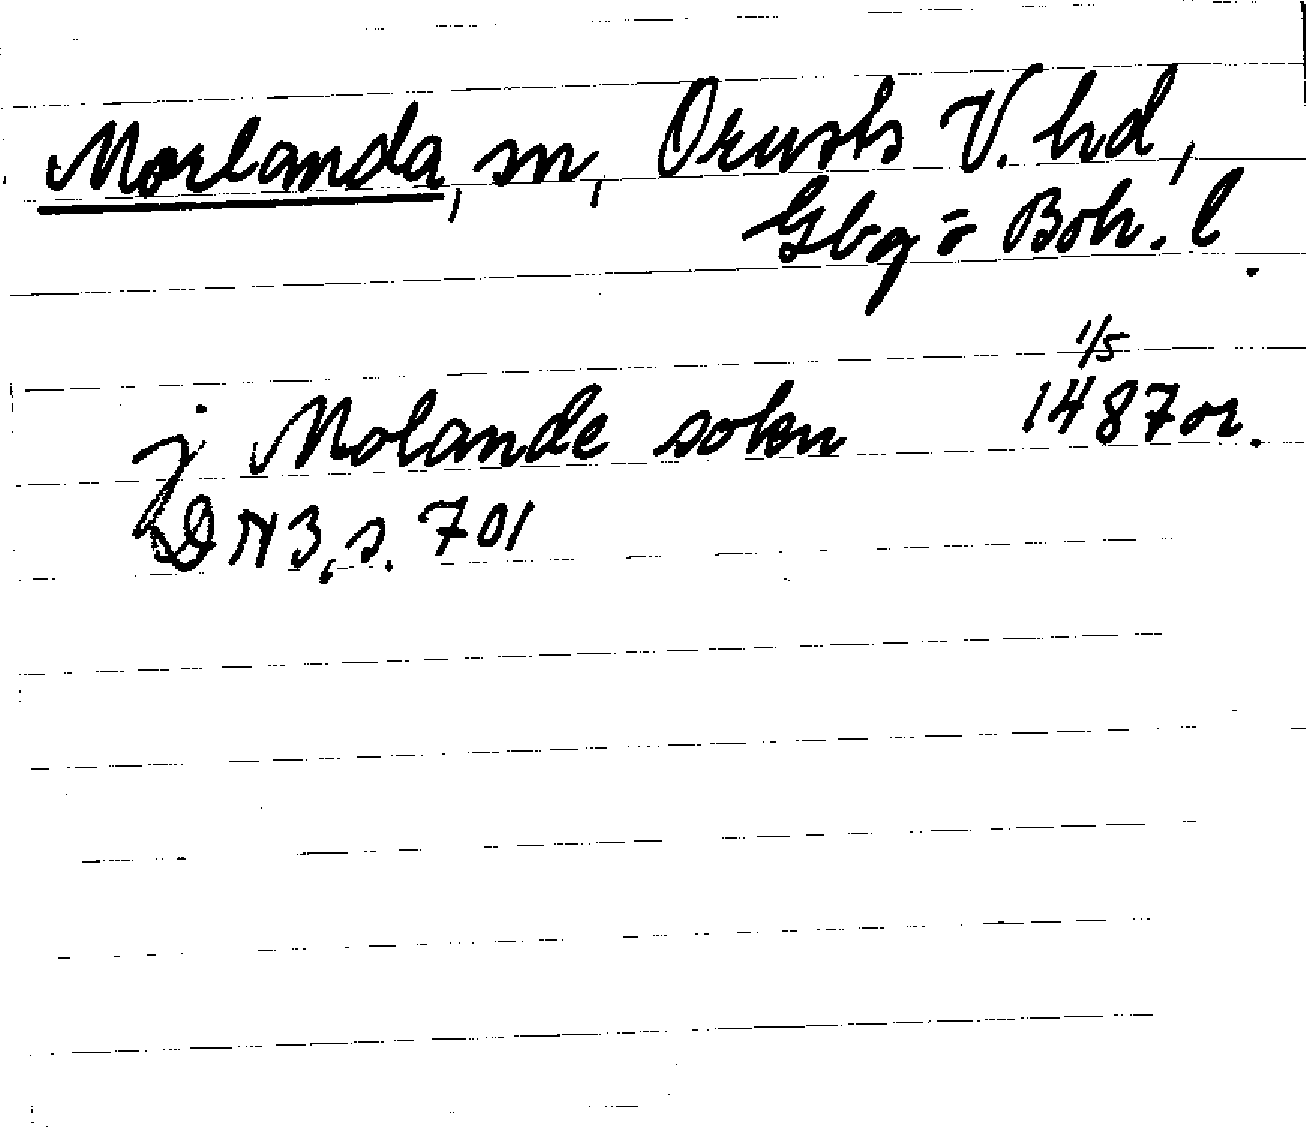 Morlanda, sn, Orusts V. hd,
Gbg o Boh. l.
1/5
j Molande sokn 1487 or.
DN 3, s. 701